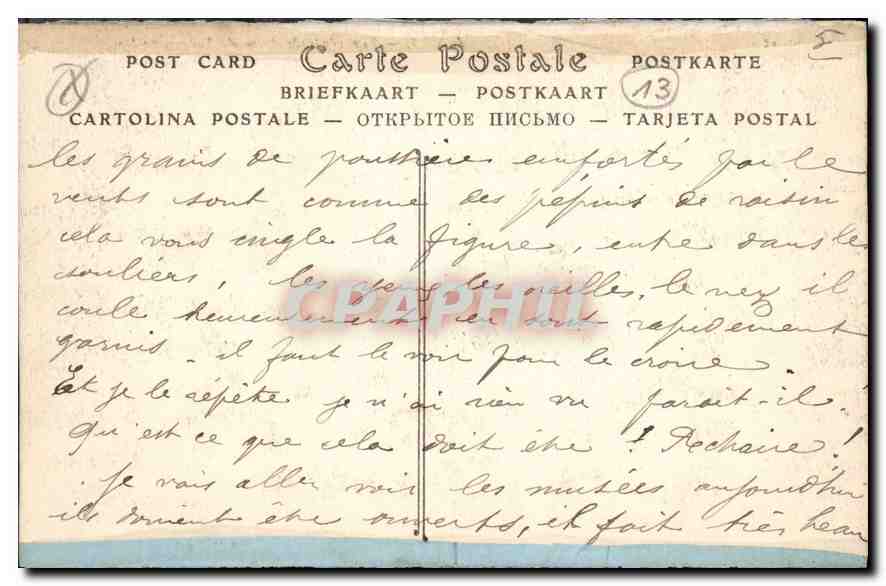 5
POST CARD Carte Postale POSTKARTE
13
BRIEFKAART — POSTKAART
CARTOLINA POSTALE — ОТКРЫТОЕ ПИСЬМО — TARJETA POSTAL
les grains de poussière emportés par le
vents sont comme des pépins de raisin
cela vous cingle la figure, entre dans les
souliers, les yeux, les oreilles, le nez il
coule heureusement en sont rapidement
garnis. il faut le voir pour le croire.
Et je le répète je n'ai rien vu parait-il!
Qu'est ce que cela doit être! Pechaire!
Je vais aller voir les musées aujourd'hui
ils doivent être ouverts, il fait très beau
CPAPHIL